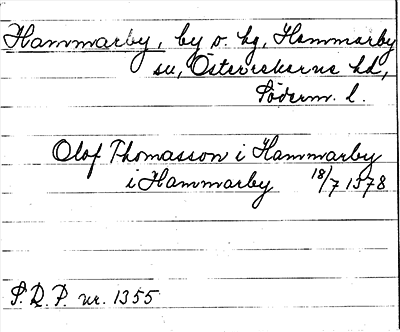 Hammarby, by o. hg, Hammarby
su, Österrekarne hd,
Söderm. l.
Olof Thomasson i Hammarby
i Hammarby 18/7 1578
S. R. P. nr. 1355